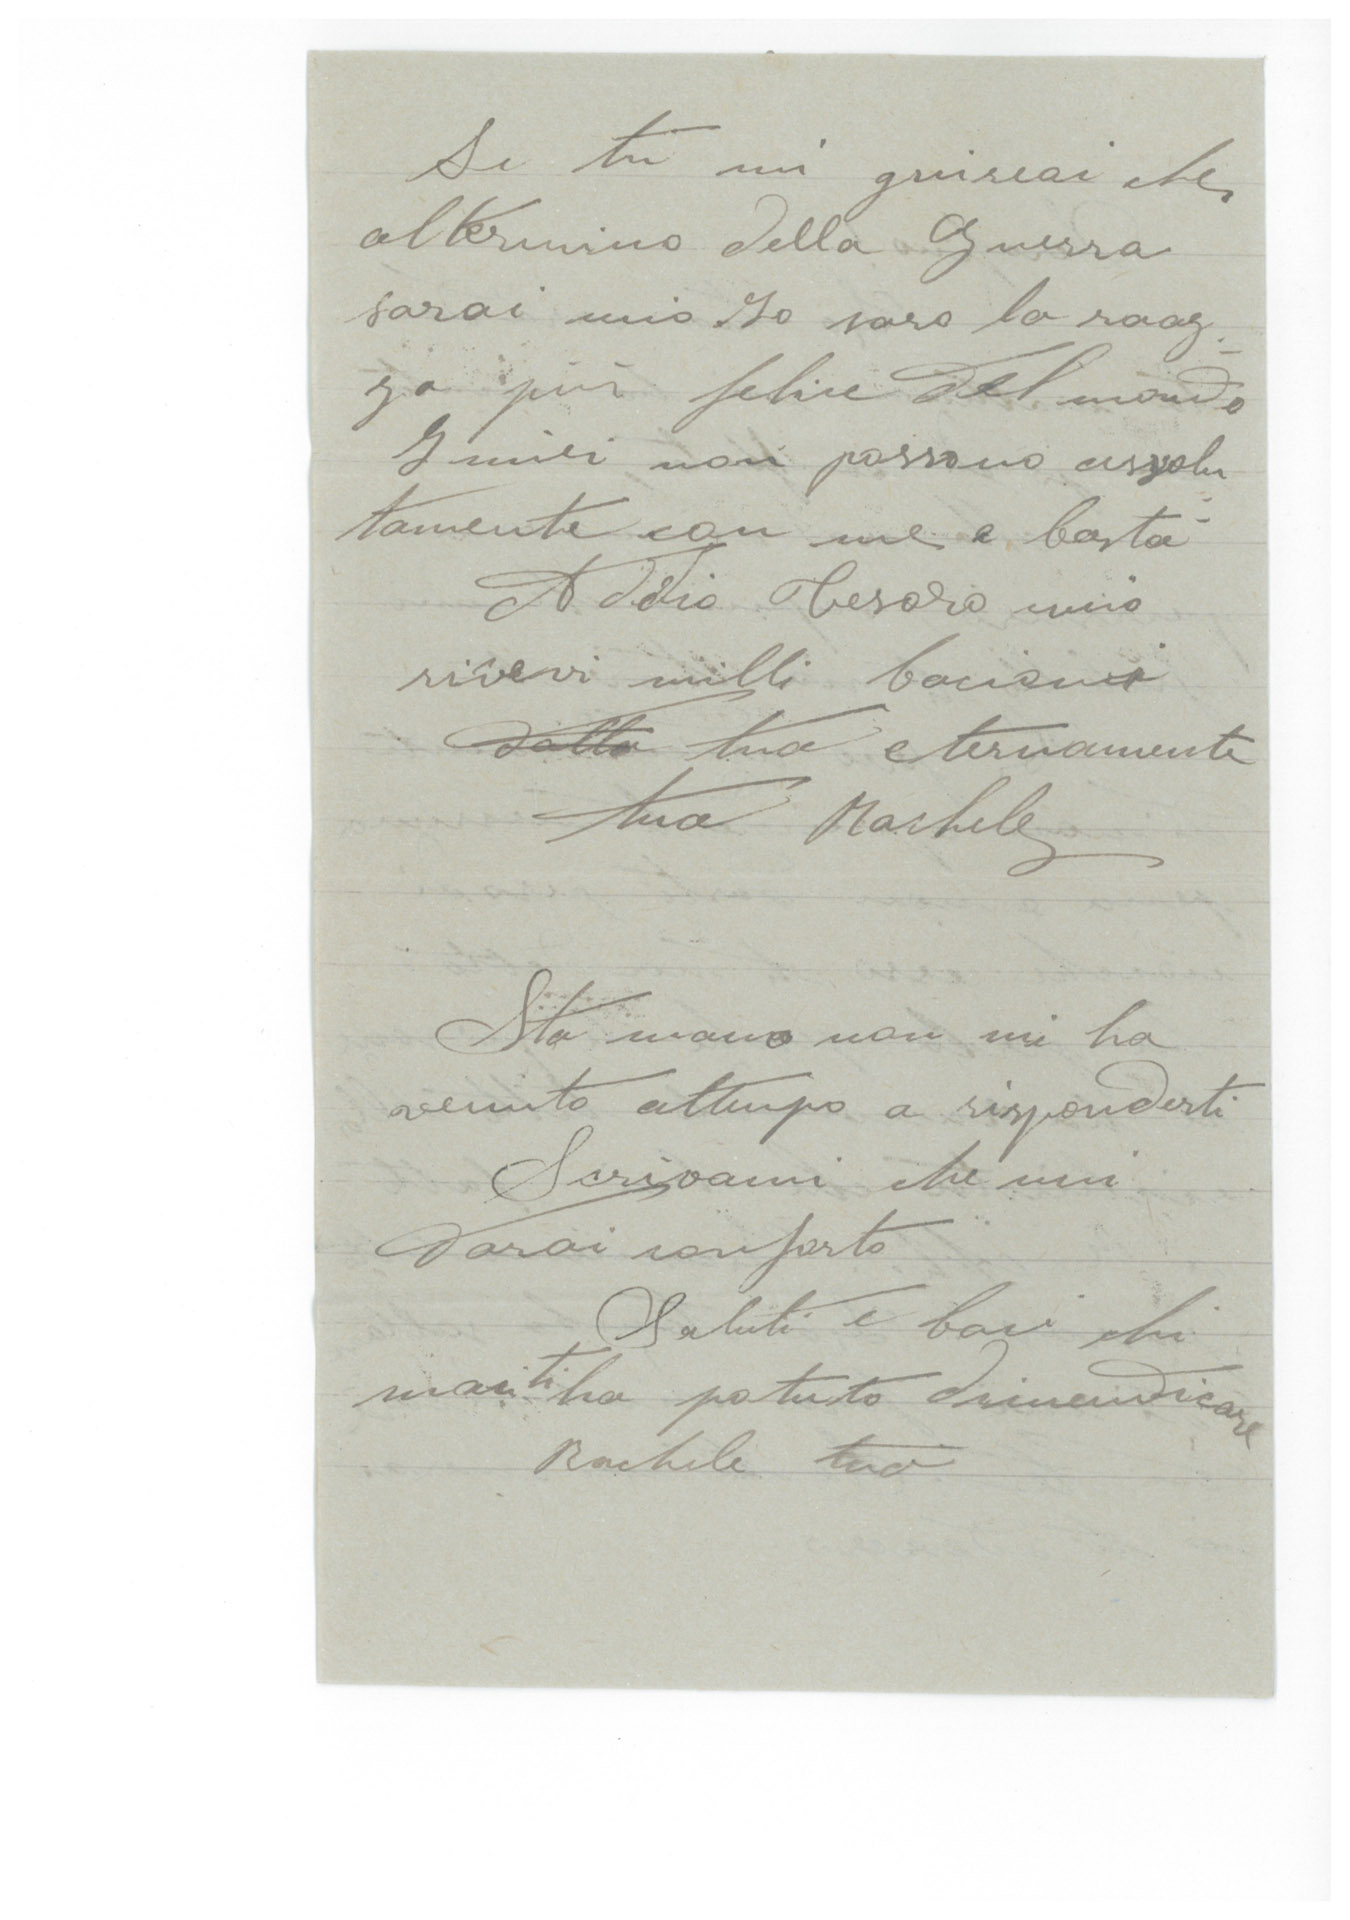 Se tu mi giurerai che
al termino della Guerra
sarai mio Io saro la raag-
za più felice del mondo
I miei non possono assolu-
tamente con me e basta
Addio Tesoro mio
ricevi milli bacioni
dalla tua eternamente
tua Rachele
Sta mano non mi ha
venuto attempo a risponderti
Scrivami che mi
darai conforto
Saluti e baci chi
mai ti ha potuto dimendicare
Rachele tua